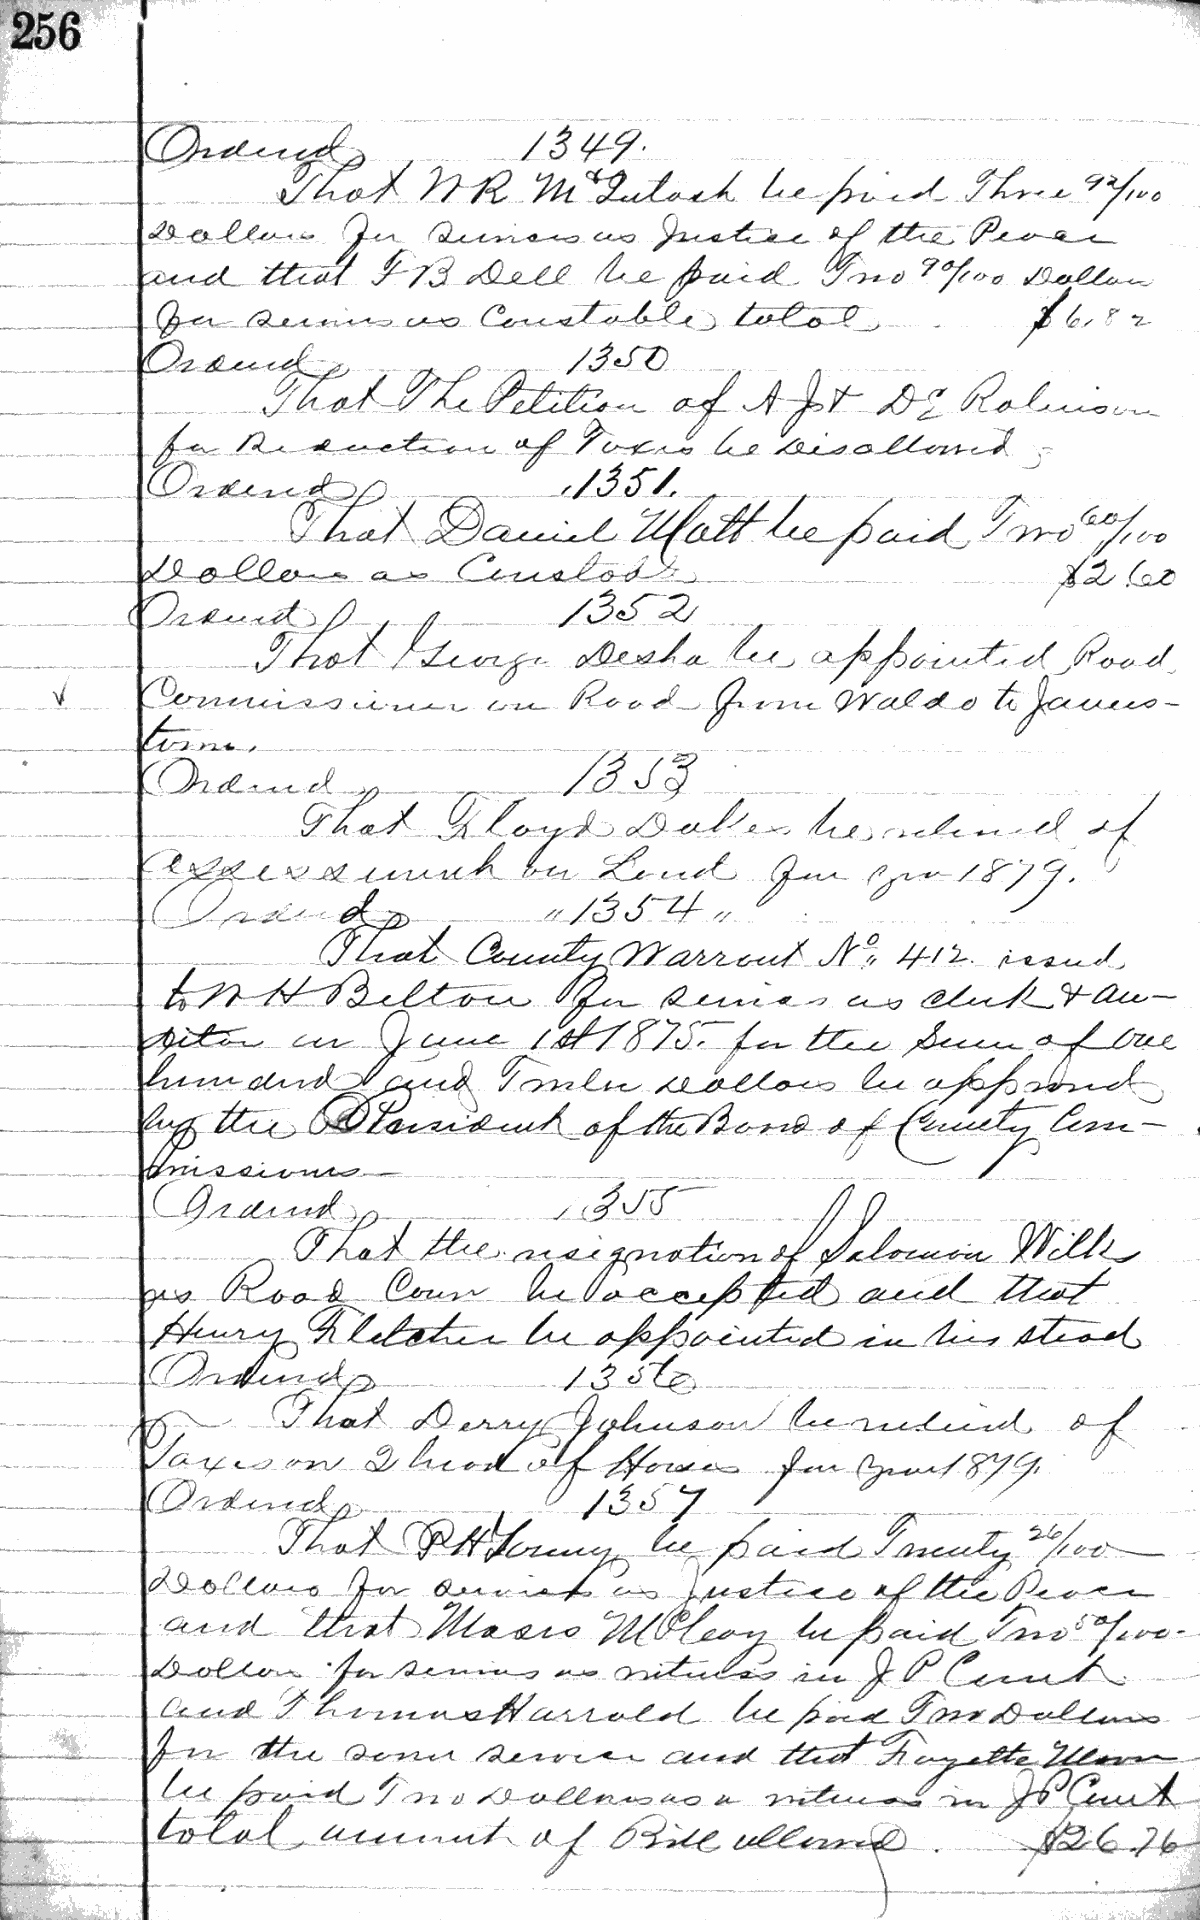 256
Ordered 1349.
That W R McIntosh be paid Three 92/100
Dollars for services as Justice of the Peace
and that F B Dell be paid Two 90/100 Dollars
for services as Constable, total $6.82
Ordered 1350
That The Petition of A J & D E Robinson
for Reduction of Taxes be Disallowed
Ordered 1351.
That Daniel Mott be paid Two 60/100
Dollars as Constable $2.60
Ordered 1352
That George Desha be appointed Road
Commissioner on Road from Waldo to James-
town.
Ordered 1353
That Floyd Dukes be relieved of
assessment on Land for year 1879.
Ordered "1354"
That County Warrant No. 412. issued
to W H Belton for services as clerk & au-
ditor on June 1st 1875. for the Sum of one
hundred and Twelve Dollars be approved
by the President of the Board of County Com-
missioners
Ordered 1355
That the resignation of Solomon Wilks
as Road Com be accepted and that
Henry Fletcher be appointed in his stead
Ordered 1356
That Derry Johnson be relieved of
Taxes on 2 head of Horses for year 1879.
Ordered 1357
That P H Young be paid Twenty 26/100
Dollars for services as Justice of the Peace
and that Moses McCleoy be paid Two 50/100
Dollars for services as witness in J P Court
and Thomas Harrold be paid Two Dollars
for the same service and that Fayette Moore
be paid Two Dollars as a witness in J P Court
total amount of Bill allowed. $26.76